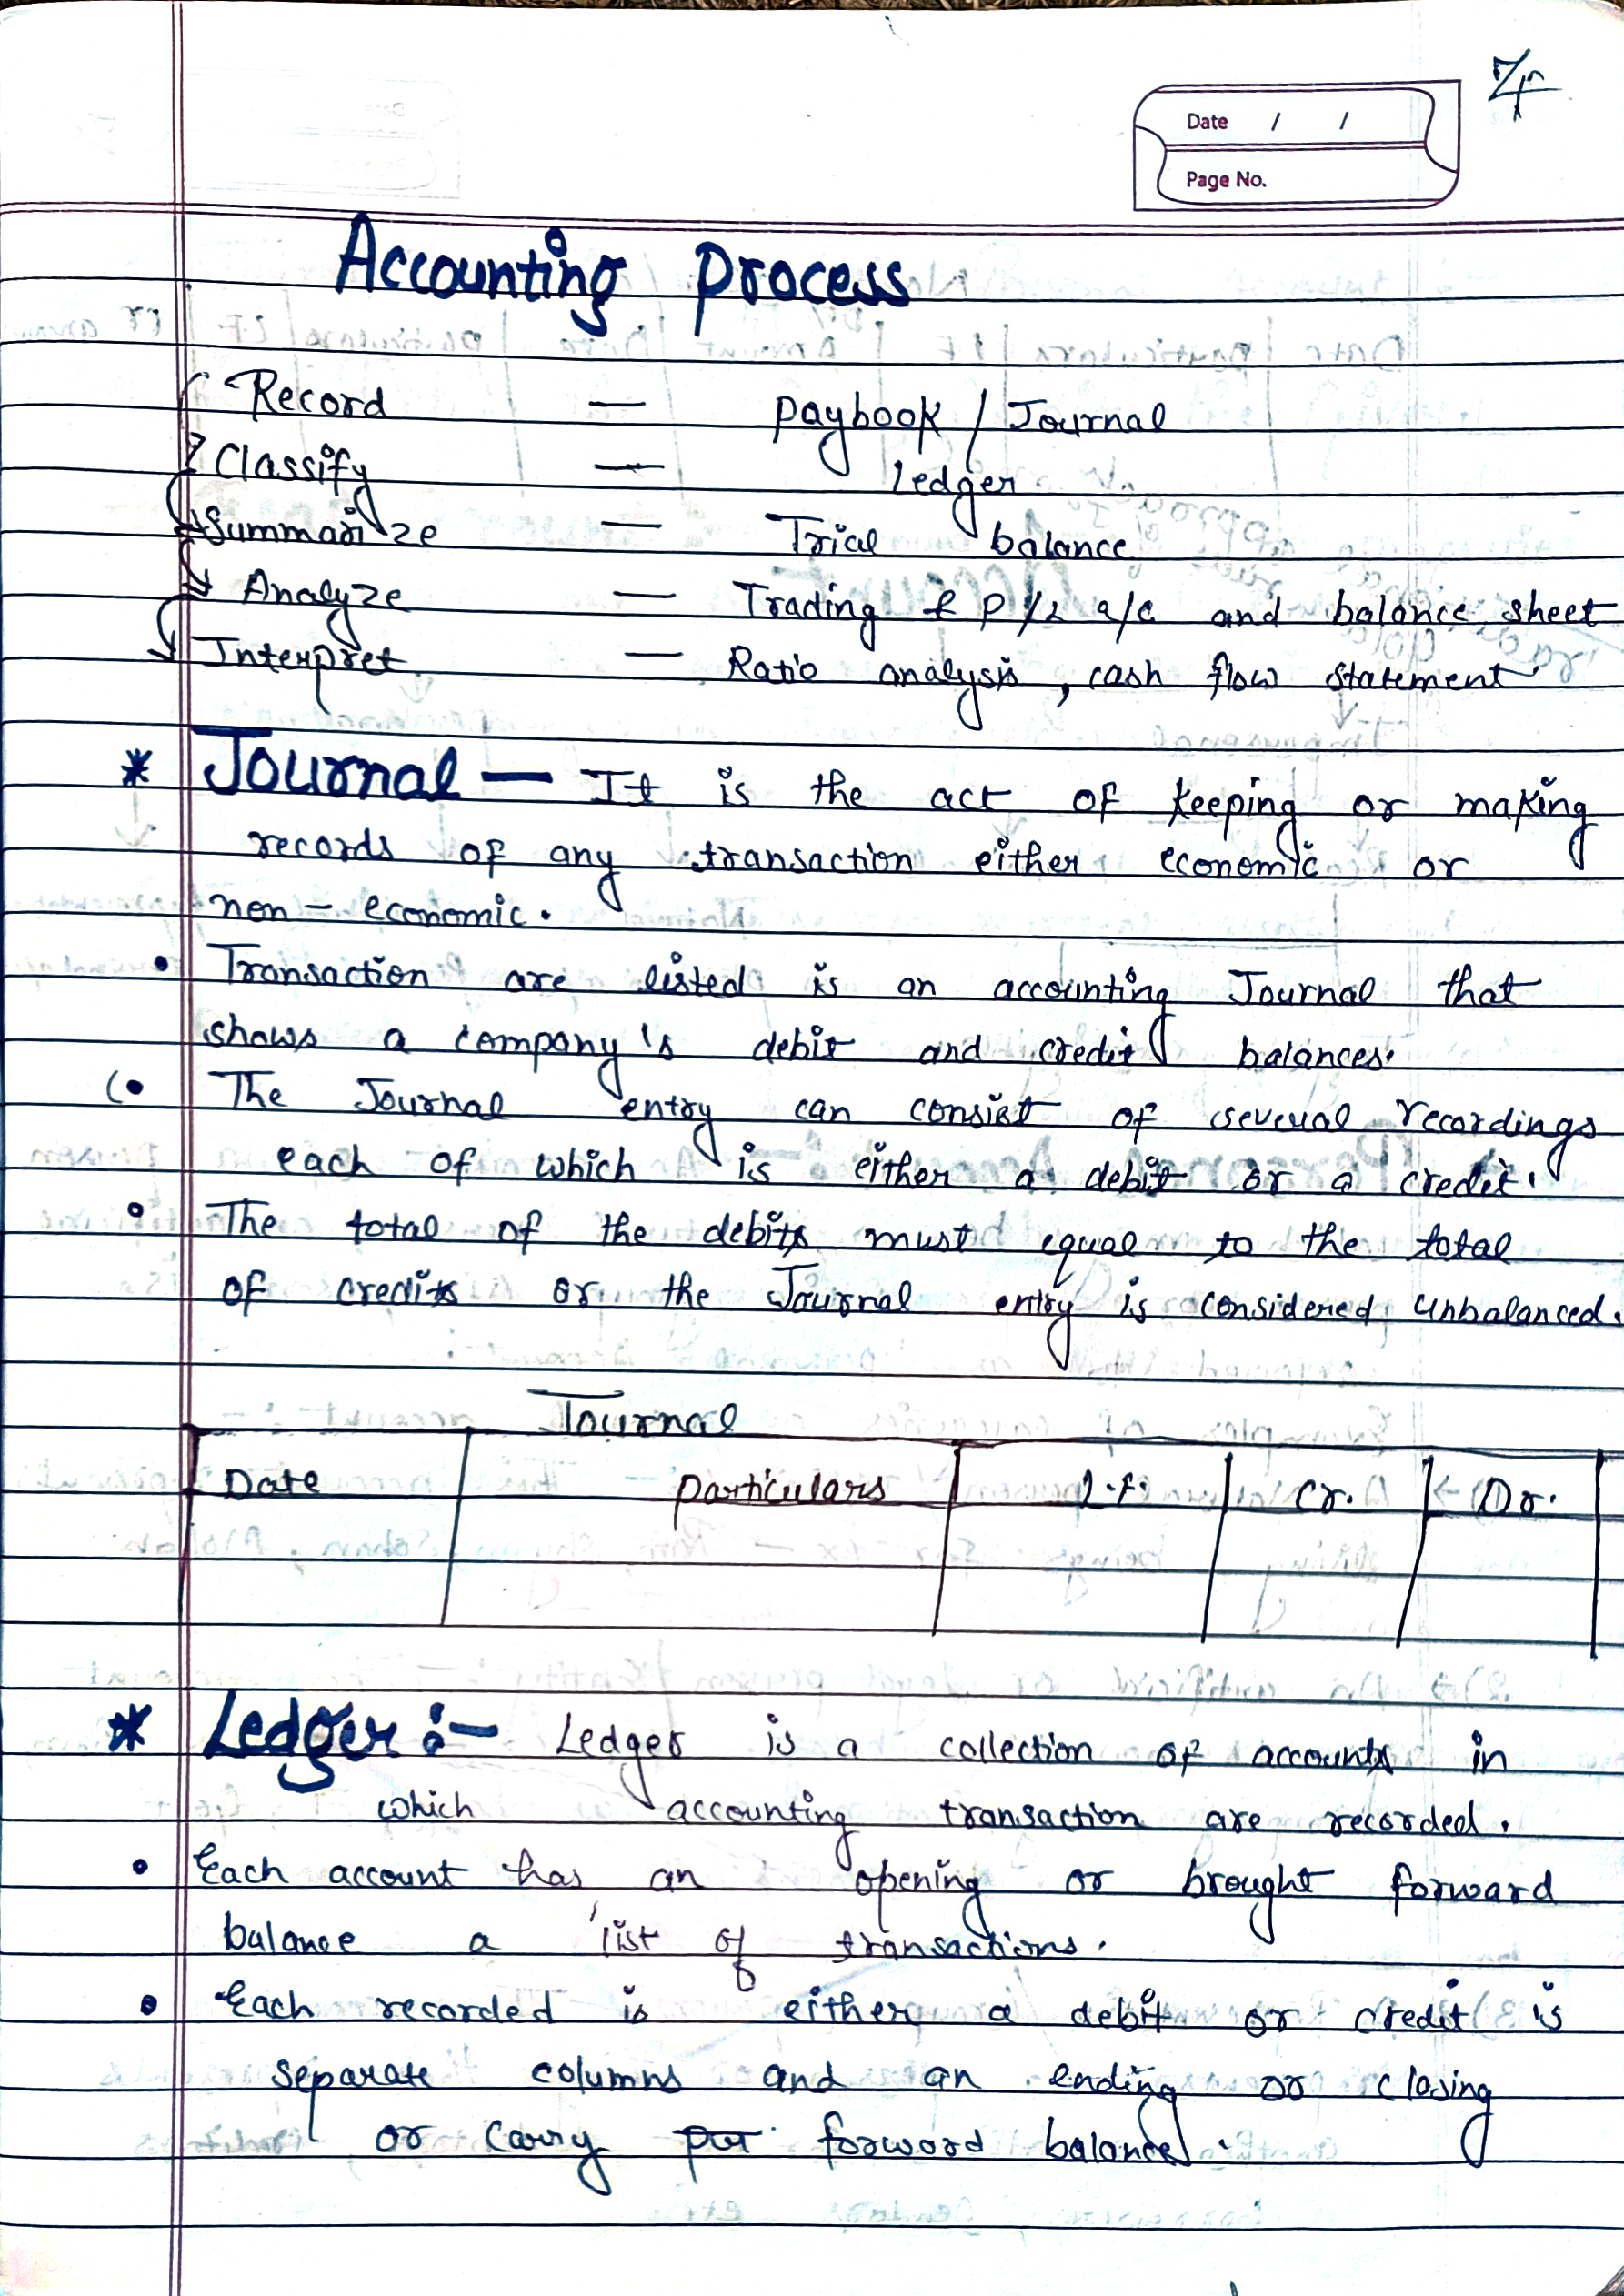 Date / /
Page No.
Accounting process
Record — paybook / Journal
Classify — Ledger
Summarize — Trial balance
Analyze — Trading & P/L a/c and balance sheet
Interpret — Ratio analysis, cash flow statement
* Journal — It is the act of keeping or making
records of any transaction either economic or
non - economic.
• Transaction are listed is an accounting Journal that
shows a company's debit and credit balances.
(• The Journal entry can consist of several recordings
each of which is either a debit or a credit.
• The total of the debits must equal to the total
of credits or the Journal entry is considered unbalanced.
Journal
Date particulars L.F. Cr. Dr.
* Ledger :- Ledger is a collection of accounts in
which accounting transaction are recorded.
• Each account has an opening or brought forward
balance a list of transactions.
• Each recorded is either a debit or credit is
separate columns and an ending or closing
or carry forword balance.